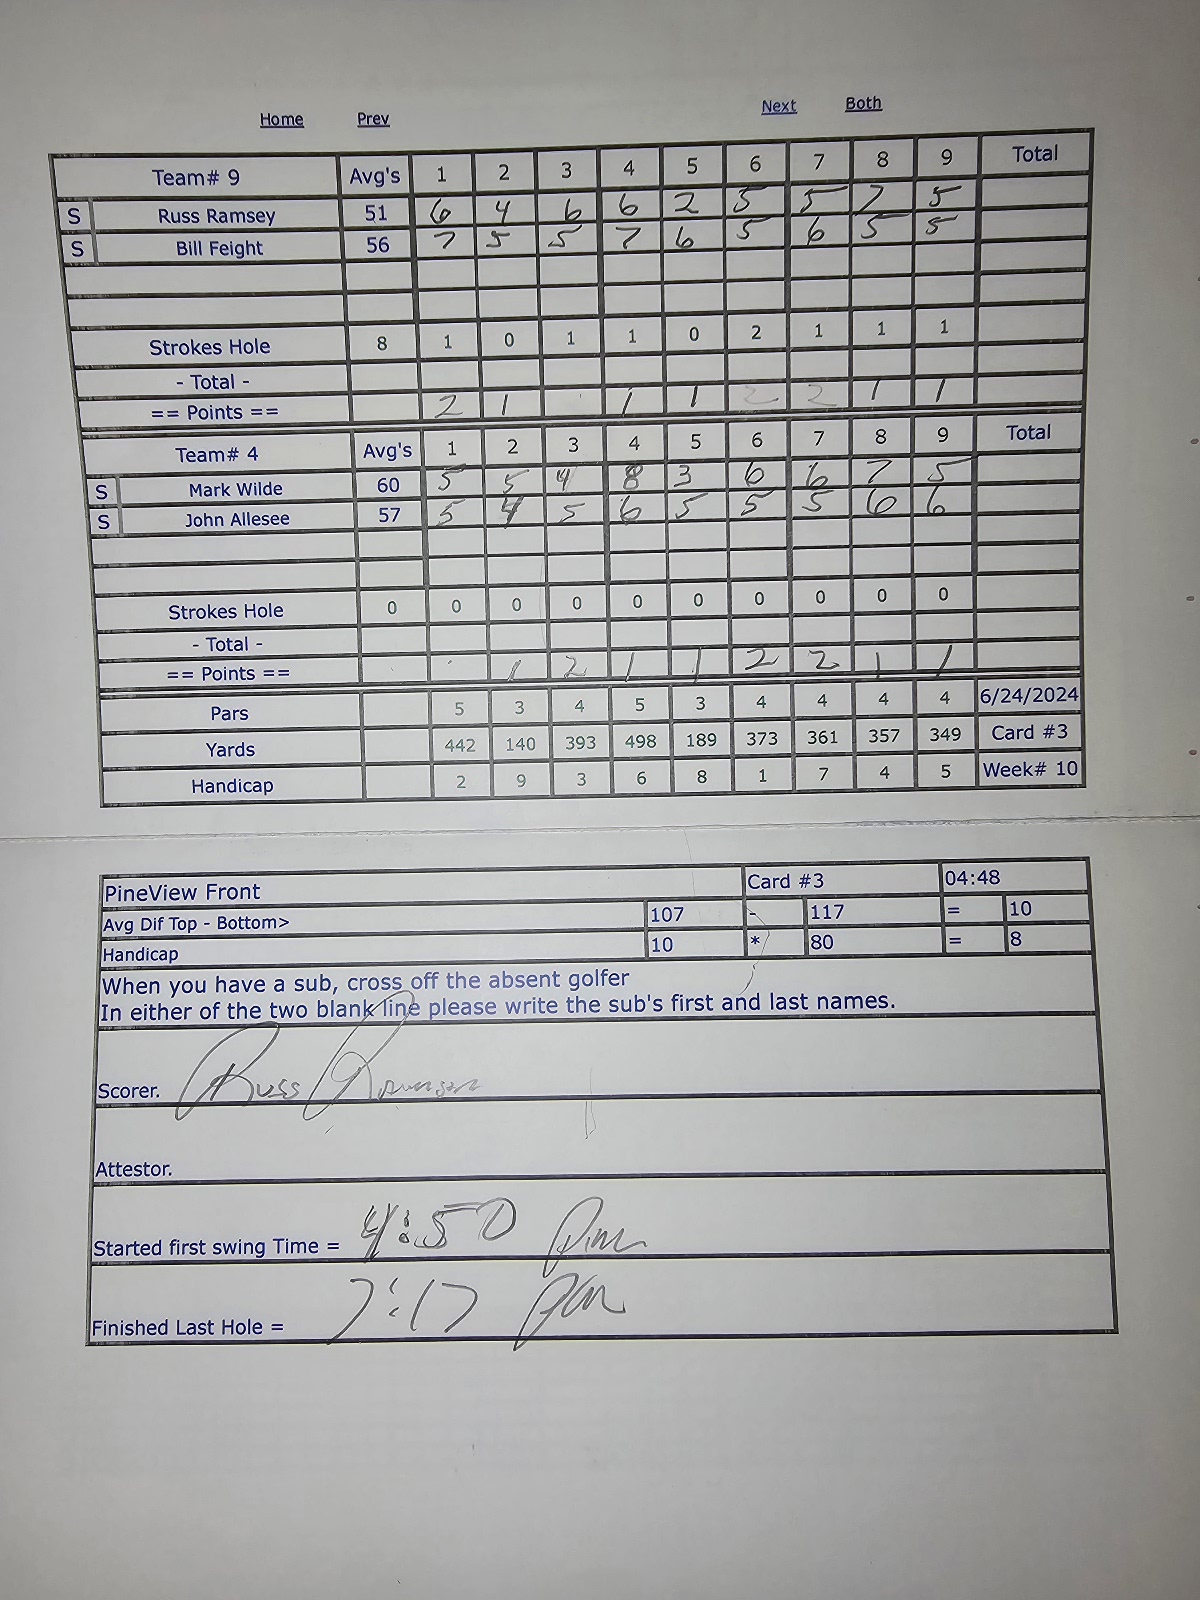 Home Prev Next Both
Team# 9 Avg's 1 2 3 4 5 6 7 8 9 Total
S Russ Ramsey 51 6 4 6 6 2 5 5 7 5
S Bill Feight 56 7 5 5 7 6 5 6 5 5
Strokes Hole 8 1 0 1 1 0 2 1 1 1
- Total -
== Points == 2 1 1 1 2 2 1 1
Team# 4 Avg's 1 2 3 4 5 6 7 8 9 Total
S Mark Wilde 60 5 5 4 8 3 6 6 7 5
S John Allesee 57 5 4 5 6 5 5 5 6 6
Strokes Hole 0 0 0 0 0 0 0 0 0 0
- Total -
== Points == 1 2 1 1 2 2 1 1
Pars 5 3 4 5 3 4 4 4 4 6/24/2024
Yards 442 140 393 498 189 373 361 357 349 Card #3
Handicap 2 9 3 6 8 1 7 4 5 Week# 10
PineView Front Card #3 04:48
Avg Dif Top - Bottom> 107 - 117 = 10
Handicap 10 * 80 = 8
When you have a sub, cross off the absent golfer
In either of the two blank line please write the sub's first and last names.
Scorer. Russ Ramsey
Attestor.
Started first swing Time = 4:50 pm
Finished Last Hole = 7:17 pm